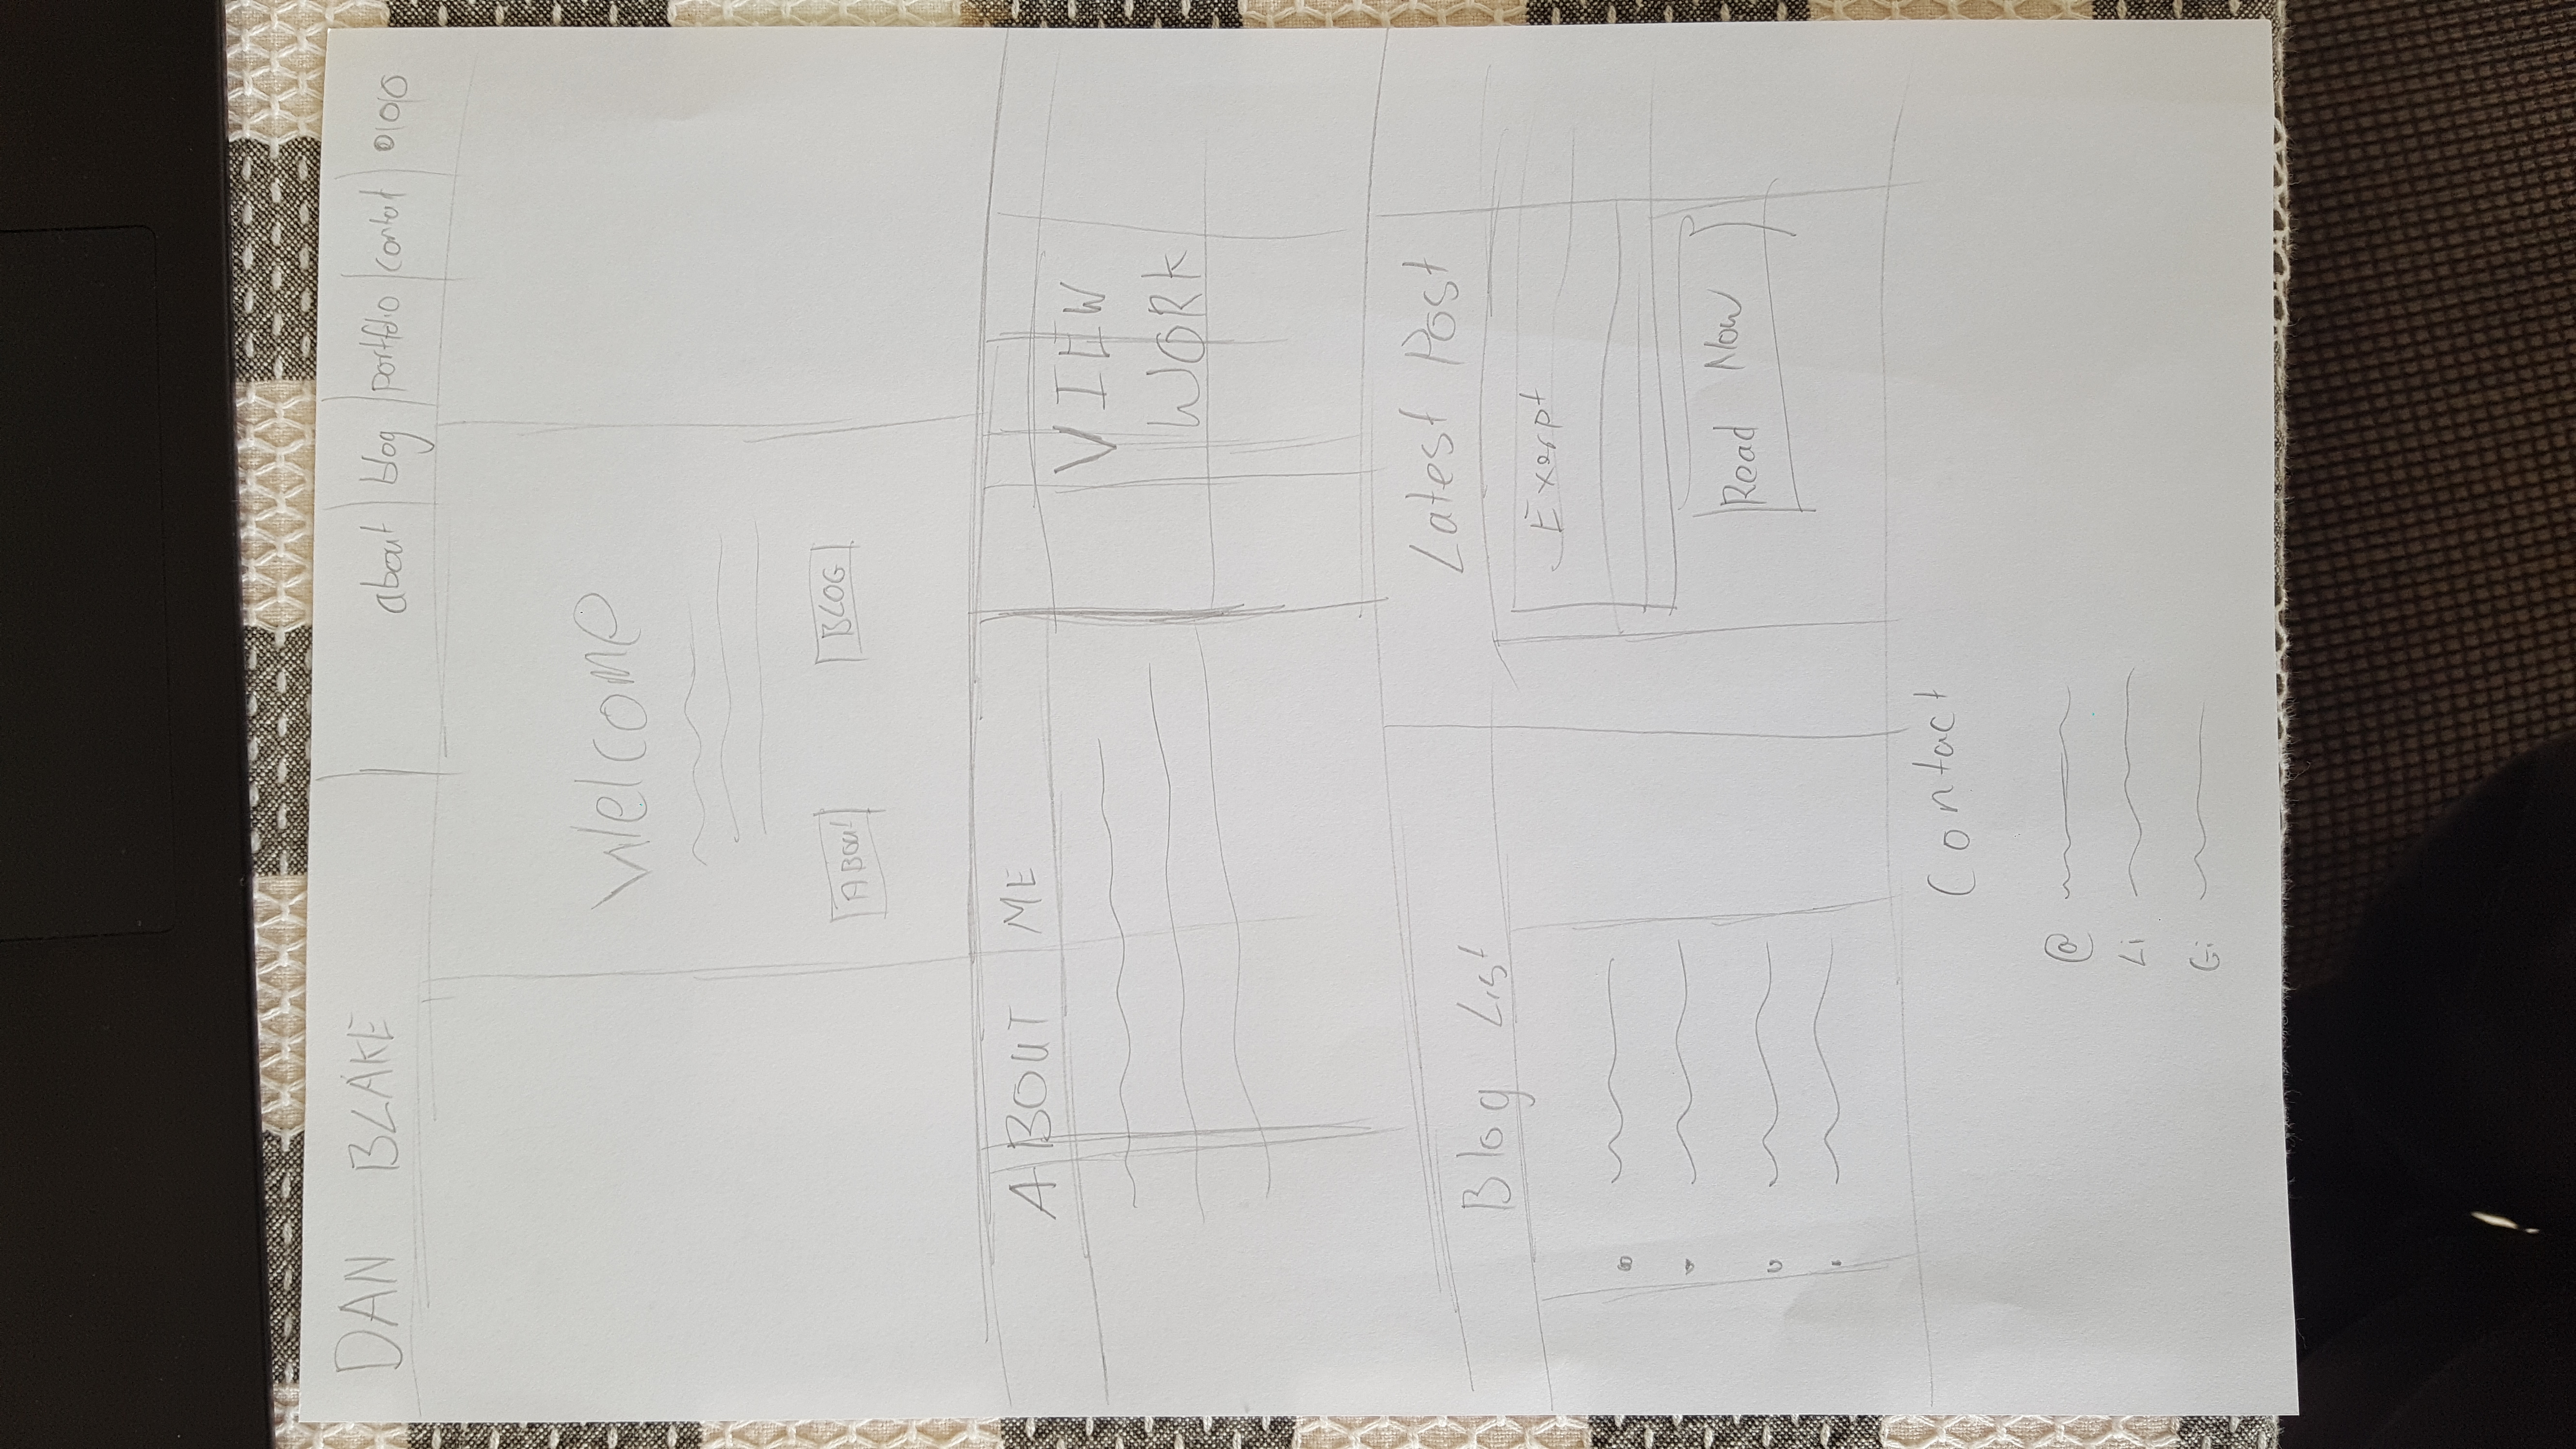 DAN BLAKE
about blog portfolio contat
Welcome
ABOUT BLOG
ABOUT ME
VIEW
WORK
Blog List
Latest Post
Exerpt
Read Now
Contact
@
Li
Gi